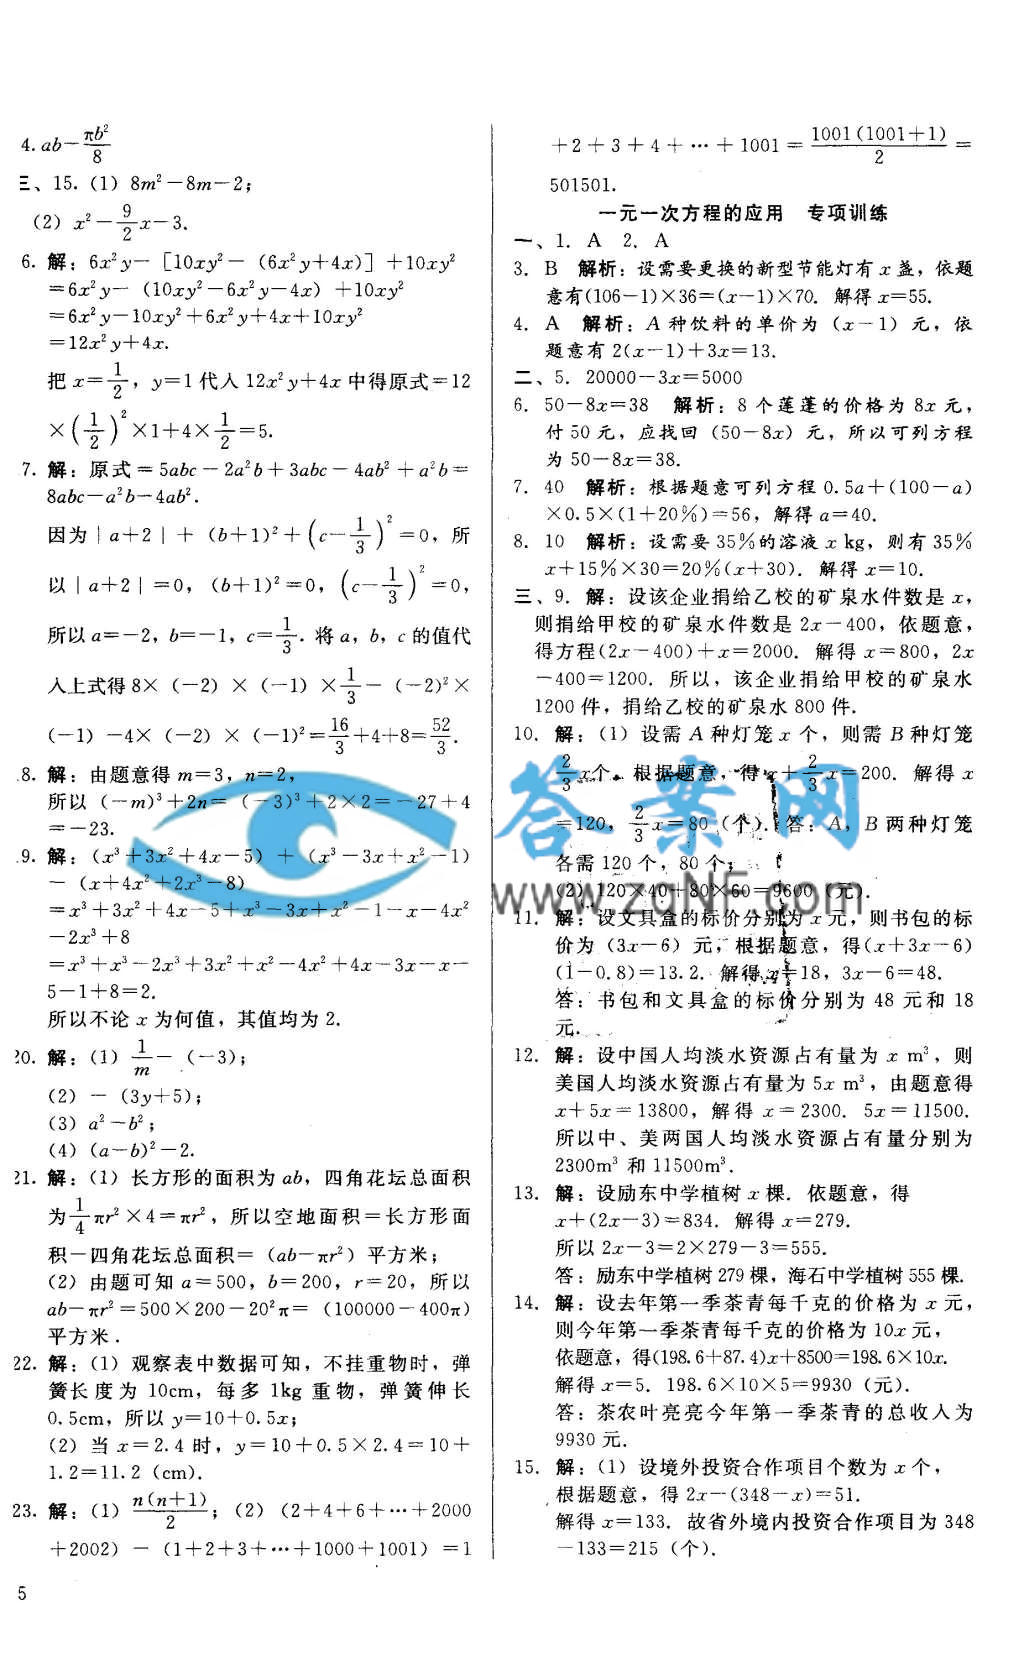 4. ab－πb²/8
三、15. (1) 8m²－8m－2;
(2) x²－9/2x－3.
6. 解: 6x²y－[10xy²－(6x²y+4x)]+10xy²
=6x²y－(10xy²－6x²y－4x)+10xy²
=6x²y－10xy²+6x²y+4x+10xy²
=12x²y+4x.
把 x=1/2, y=1 代入 12x²y+4x 中得原式=12
×(1/2)²×1+4×1/2=5.
7. 解: 原式=5abc－2a²b+3abc－4ab²+a²b=
8abc－a²b－4ab².
因为|a+2|+(b+1)²+(c－1/3)²=0, 所
以|a+2|=0, (b+1)²=0, (c－1/3)²=0,
所以 a=－2, b=－1, c=1/3. 将 a, b, c 的值代
入上式得 8×(－2)×(－1)×1/3－(－2)²×
(－1)－4×(－2)×(－1)²=16/3+4+8=52/3.
8. 解: 由题意得 m=3, n=2,
所以 (－m)³+2n=(－3)³+2×2=－27+4
=－23.
9. 解: (x³+3x²+4x－5)+(x³－3x+x²－1)
－(x+4x²+2x³－8)
=x³+3x²+4x－5+x³－3x+x²－1－x－4x²
－2x³+8
=x³+x³－2x³+3x²+x²－4x²+4x－3x－x－
5－1+8=2.
所以不论 x 为何值, 其值均为 2.
20. 解: (1) 1/m－(－3);
(2) －(3y+5);
(3) a²－b²;
(4) (a－b)²－2.
21. 解: (1) 长方形的面积为 ab, 四角花坛总面积
为1/4πr²×4=πr², 所以空地面积=长方形面
积－四角花坛总面积=(ab－πr²) 平方米;
(2) 由题可知 a=500, b=200, r=20, 所以
ab－πr²=500×200－20²π=(100000－400π)
平方米.
22. 解: (1) 观察表中数据可知, 不挂重物时, 弹
簧长度为 10cm, 每多 1kg 重物, 弹簧伸长
0.5cm, 所以 y=10+0.5x;
(2) 当 x=2.4 时, y=10+0.5×2.4=10+
1.2=11.2 (cm).
23. 解: (1) n(n+1)/2; (2) (2+4+6+…+2000
+2002)－(1+2+3+…+1000+1001)=1
5
+2+3+4+…+1001=1001(1001+1)/2=
501501.
一元一次方程的应用 专项训练
一、1. A 2. A
3. B 解析: 设需要更换的新型节能灯有 x 盏, 依题
意有(106－1)×36=(x－1)×70. 解得 x=55.
4. A 解析: A 种饮料的单价为 (x－1) 元, 依
题意有 2(x－1)+3x=13.
二、5. 20000－3x=5000
6. 50－8x=38 解析: 8 个莲蓬的价格为 8x 元,
付 50 元, 应找回 (50－8x) 元, 所以可列方程
为 50－8x=38.
7. 40 解析: 根据题意可列方程 0.5a+(100－a)
×0.5×(1+20%)=56, 解得 a=40.
8. 10 解析: 设需要 35%的溶液 x kg, 则有 35%
x+15%×30=20%(x+30). 解得 x=10.
三、9. 解: 设该企业捐给乙校的矿泉水件数是 x,
则捐给甲校的矿泉水件数是 2x－400, 依题意,
得方程(2x－400)+x=2000. 解得 x=800, 2x
－400=1200. 所以, 该企业捐给甲校的矿泉水
1200 件, 捐给乙校的矿泉水 800 件.
10. 解: (1) 设需 A 种灯笼 x 个, 则需 B 种灯笼
2/3x个. 根据题意, 得 x+2/3x=200. 解得 x
=120, 2/3x=80 (个). 答: A, B 两种灯笼
各需 120 个, 80 个;
(2) 120×40+80×60=9600 (元).
11. 解: 设文具盒的标价分别为 x 元, 则书包的标
价为 (3x－6) 元, 根据题意, 得(x+3x－6)
(1－0.8)=13.2. 解得 x=18, 3x－6=48.
答: 书包和文具盒的标价分别为 48 元和 18
元.
12. 解: 设中国人均淡水资源占有量为 x m³, 则
美国人均淡水资源占有量为 5x m³, 由题意得
x+5x=13800, 解得 x=2300. 5x=11500.
所以中、美两国人均淡水资源占有量分别为
2300m³ 和 11500m³.
13. 解: 设励东中学植树 x 棵. 依题意, 得
x+(2x－3)=834. 解得 x=279.
所以 2x－3=2×279－3=555.
答: 励东中学植树 279 棵, 海石中学植树 555 棵.
14. 解: 设去年第一季茶青每千克的价格为 x 元,
则今年第一季茶青每千克的价格为 10x 元,
依题意, 得(198.6+87.4)x+8500=198.6×10x.
解得 x=5. 198.6×10×5=9930 (元).
答: 茶农叶亮亮今年第一季茶青的总收入为
9930 元.
15. 解: (1) 设境外投资合作项目个数为 x 个,
根据题意, 得 2x－(348－x)=51.
解得 x=133. 故省外境内投资合作项目为 348
－133=215 (个).
答案网
www.zqNF.com